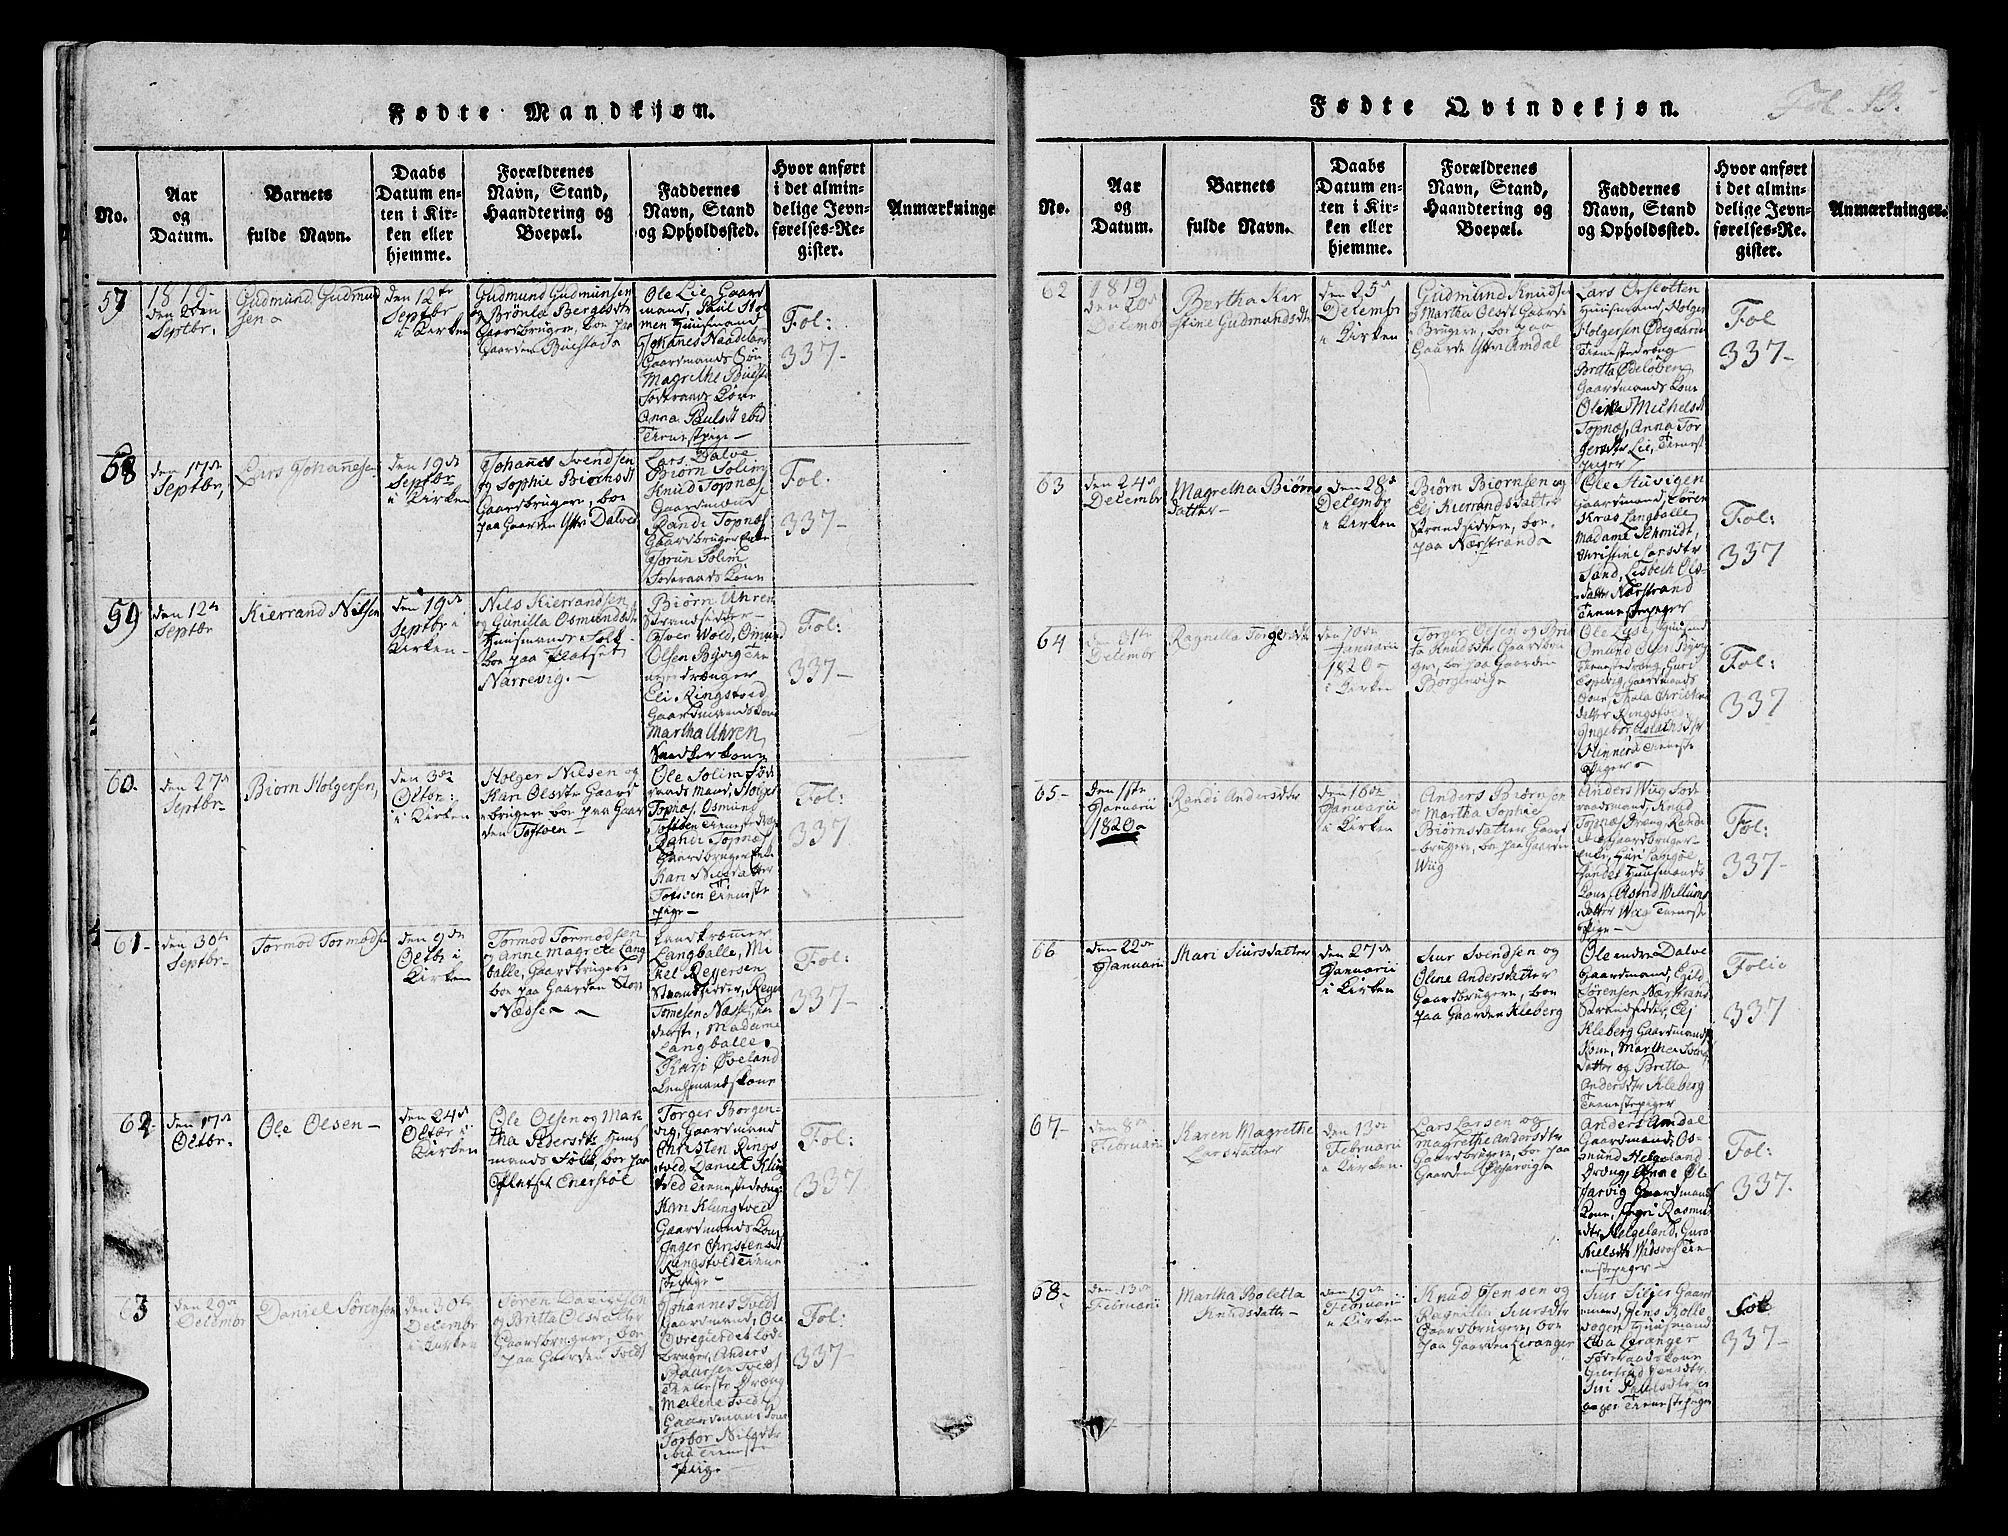 Fødte Mandkjøn.
No.
Aar
og
Datum.
Barnets
fulde Navn.
Daabs
Datum en-
ten i Kir-
ken eller
hjemme.
Forældrenes
Navn, Stand,
Haandtering og
Boepæl.
Faddernes
Navn, Stand
og Opholdssted.
Hvor anført
i det almin-
delige Jevn-
førelses-Re-
gister.
Anmærkninge
57
1819
den 2den
Septbr,
Gudmund Gudmund
sen
den 12te
Septbr
i Kirken
Gudmund Gudmunsen
og Brönla Bergesdtr
Gaardbrugere, boe paa
Gaarden Buestad
Ole Lie Gaard
mand, Paul Sto
men Huusmand
Johanes Naadeland
Gaardmands Søn
Magrethe Buesta
Foderaads Kone
Anna Paulsdt ibid
Tienestpige
Fol:
337-
58
den 17de
Septbr,
Lars Johanesen
den 19de
Septbr
i Kirken
Johanes Svendsen
og Sophie Biørnsdt
Gaardbrugere, boe
paa Gaarden Ytre Dalve
Lars Dalve
Biørn Solim
Knud Topnæs
Gaardmænd
Randi Topnæs
Gaardbruger Enke
Jorun Solim
Foderaads Kone
Fol:
337-
59
den 12te
Septbr
Kierrand Nilsen
den 19de
Septbr i
Kirken-
Nils Kierrandsen
og Gunilla Osmundsdt
Huusmands Folk
boe paa Platset
Narrevig.-
Biørn Uhren
Strandsidder
Iver Wold, Omund
Olsen Bøvig Tie
nestedrænger
Eli Ringstved
Gaardmands Kone
Martha Uhren
Snedker Kone
Fol:
337-
60.
den 27de
Septbr-
Biørn Holgersen,
den 3die
Octbr:
i Kirken
Holger Nilsen og
Kari Olsdtr Gaard
brugere boe paa Gaar
den Toftven-
Ole Solim Føde
raads Mand, Holger
Topnæs, Osmund
Tostven Tienestedræng
Randi Topnæs
Gaardbruger Enke
Kari Nilsdatter
Tostven Tieneste
pige-
Fol:
337
61-
den 30te
Septbr-
Tormod Tormodse
den 9de
Octbr i
Kirken
Tormod Tormodsen
og Anne Magrete Lang
balle, Gaardbrugere
boe paa Gaarden Stor
Nædse-
Landkræmmer
Langballe, Mi
kel Rejersen
Strandsidder, Rejer
Tomesen Næsse,
Madame
Langballe
Kari Øveland
Lensmandskone
Fol:
337-
62
den 17de
Octbr-
Ole Olsen-
den 24de
Octbr i
Kirken
Ole Olsen og Mar
tha Pedersdtr Huus
mands Folk, boe paa
Platset Enerstøl
Torger Borgen-
vig Gaardmand
Christen Rings
tved, Daniel Kling
tved Tienestedræng
Kari Klungtved
Gaardmands Kone
Inger Christensdt
Ringstved Tiene
stepige-
Fol:
337
63
den 29de
Decembr
Daniel Sørensen
den 30te
Decembr
i Kirken
Søren Danielsen
og Britta Olsdatter
Gaardbrugere, boe
paa Gaarden Tvedt
Johannes Tvedt
Gaardmand, Ole
bruger, Anders
Tvedt
Tieneste Dræng
Malene Tvedt
Gaardmans Kone
Torbor Nilsdtr
ibid Tieneste
pige
Fol:
337-
Fødte Qvindekjøn.
Fol. 13.
No.
Aar
og
Datum.
Barnets
fulde Navn.
Daabs
Datum en-
ten i Kir-
ken eller
hjemme.
Forældrenes
Navn, Stand,
Haandtering og
Boepæl.
Faddernes
Navn, Stand
og Opholdssted.
Hvor anført
i det almin-
delige Jevn-
førelses-Re-
gister.
Anmærkninger.
62
1819
den 20de
Decembr
Bertha Kir
stine Gudmundsdtr
den 25de
Decembr
i Kirken
Gudmund Knudsen
og Martha Olsdt Gaard
Brugere, boe paa
Gaarde Yttre Amdal
Lars Orstotten
Huusmand, Holger
Holgersen Ødegaard
Tienestedræng
Britta
Gaardmands Kone
Michelsdt
Topnæs, Anna Tor
gersdtr Lie, Tieneste
piger
Fol
337-
63
den 24de
Decembr
Magretha Biørns
datter-
den 28de
Decembr
i Kirken
Biørn Biørnsen og
Elj Kierrandsdatter
Strandsiddere, boe
paa Nærstrand
Ole Stuvigen
Gaardmand, Søren
Kras Langballe
Madame Schmidt,
Christine Larsdtr
Sand, Lisbeth Ols-
datter Nærstrand
Tienestepiger
Fol:
337
64
den 31te
Decembr
Ragnilla Torgersdtr
den 10de
Januarii
1820-
i Kirken
Torger Olsen og Brit
ta Knudsdtr Gaardbru
gere, boe paa Gaarden
Borgenvig
Ole Lyse, Huusmand
Omund Olsen Bøvig
Tienestedræng Guri
Espevig, Gaardmands
Kone, Thala Christens
datter Ringstved
Ingebor Aslachsdtr
Hinnerå Tieneste
Piger
Fol:
337
65-
den 1ste
Januarii
1820-
Randi Andersdtr
den 16de
Januarii
i Kirken
Anders Biørnsen
og Martha Sophie
Biørnsdatter Gaard
-brugere, boe paa Gaarden
Wiig
Anders Wiig Fode
raadsmand, Knud
Topnæs Dræng, Randi
Gaardbruger-
Enke, Guri Langøe
landet Huusmands
Kone, Astrid Willums
datter Wiig Tieneste
pige-
Fol:
337-
66
den 22de
Januarii
Mari Siursdatter
den 27de
Januarii
i Kirken
Siur Svendsen og
Oline Andersdatter
Gaardbrugere, boe
paa Gaarden Kleberg
Ole andre Dalve
Gaardmand, Egild
Sørensen Nærstrand
Strandsidder, Elj
Kleberg Gaardmands
Kone, Martha Svens
datter og Britta
Andersdtr Kleberg
Tienestepiger
Folie
337
67-
den 8de
Februarii
Karen Magrethe
Larsdatter
den 13de
Februarii
i Kirken.
Lars Larsen og
Magrethe Andersdtr
Gaardbrugere, boe paa
Gaarden
Anders Amdal
Gaardmand, Os-
mund Helgeland
Dræng, Anne
Gaardmands
Kone, Ingri Rasmus
dtr Helgeland, Guro
Nielsdtr Tie-
nestepiger-
Fol:
337.
68-
den 13de
Februarii
Martha Boletta
Knudsdatter-
den 19de
Februarii
i Kirken
Knud Jensen og
Ragnilla Siursdtr
Gaardbrugere, boe
paa Gaarden Leranger
Siur Siljer Gaard
mand, Jens Kolle
Huusmand
Elsa Leranger
Føderaadskone
Giertrud Jensdtr
Siri Paulsdtr
Tienestepiger
Fol
337-